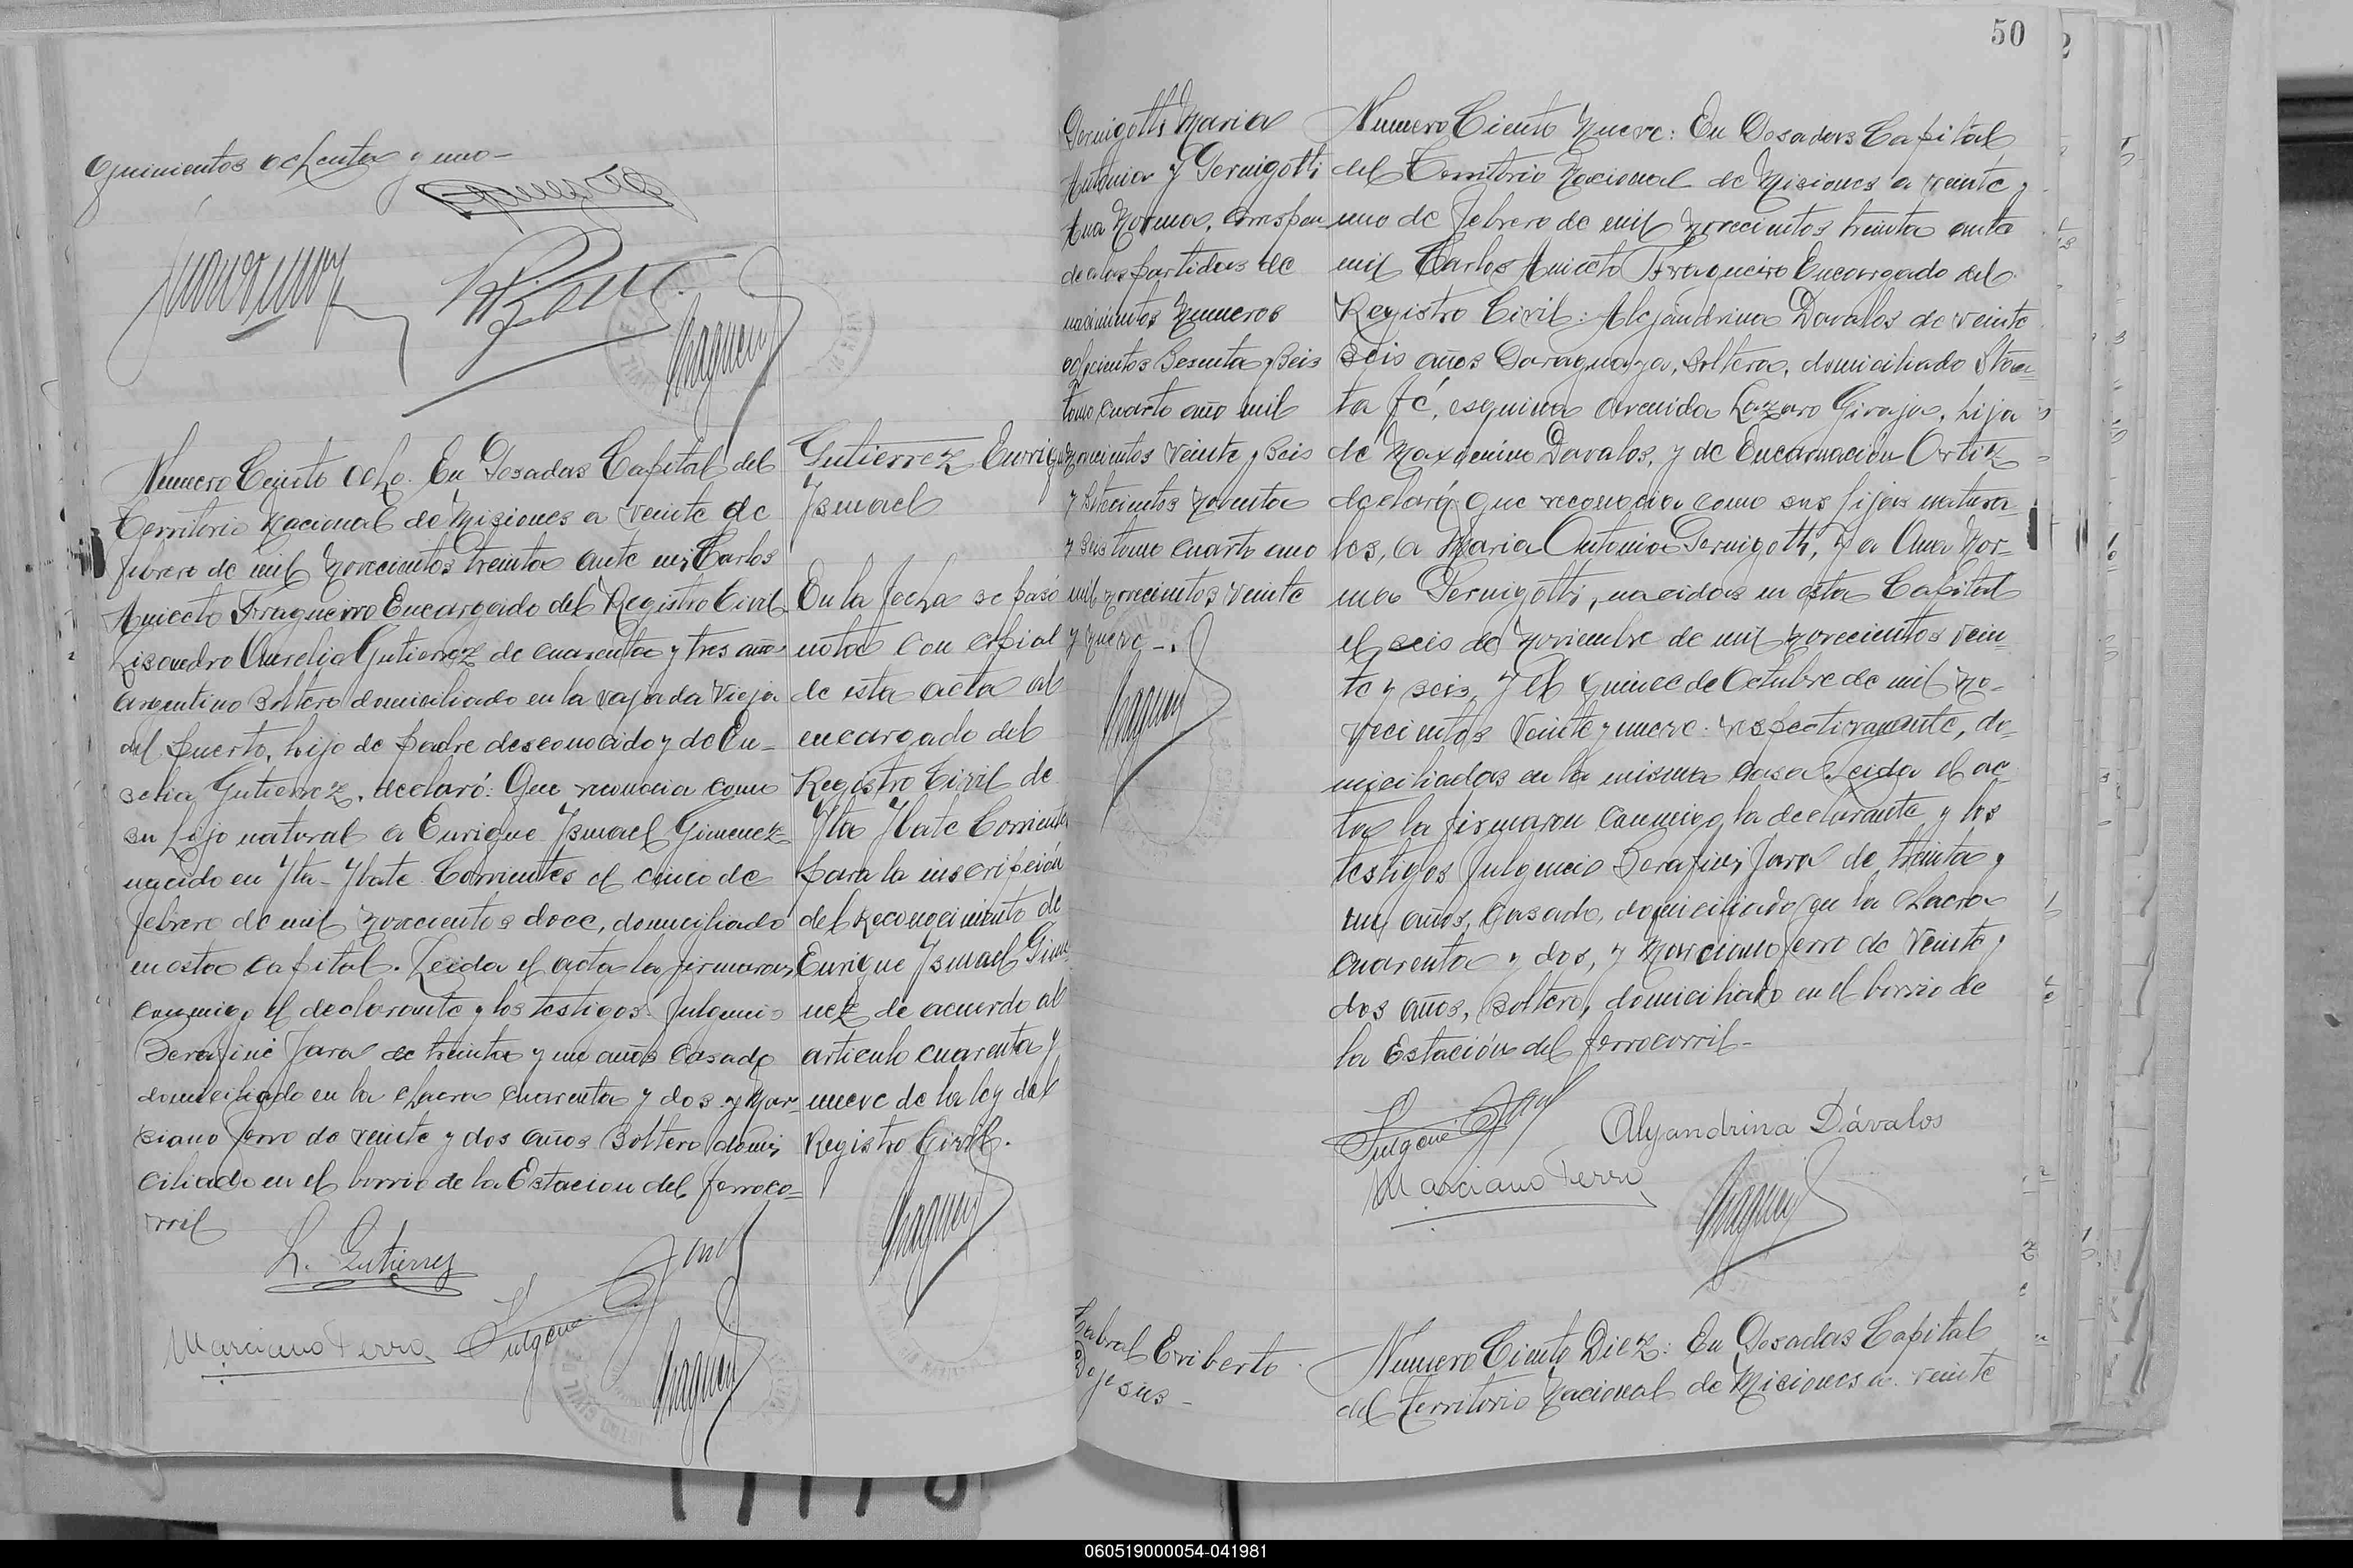 quinientos ochenta y uno-
Numero Ciento Ocho. En Posadas Capital del
Territorio Nacional de Misiones a veinte de
febrero de mil novecientos treinta ante mi Carlos
Aniceto Fragueiro Encargado del Registro Civil
Lisandro Aurelio Gutierrez de cuarenta y tres años
argentino soltero domiciliado en la vajada vieja
del puerto, hijo de padre desconocido y de Eu-
sebia Gutierrez, declaró: Que reconocia como
su hijo natural a Enrique Ysmael Gimenez
nacido en Yta-Ybate Corrientes el cinco de
febrero de mil novecientos doce, domiciliado
en esta Capital. Leida el acta la firmaron
conmigo el declarante y los testigos: Fulgencio
Serafini Jara de treinta y un años casado
domiciliado en la chacra cuarenta y dos y Mar-
ciano Ferro de veinte y dos años soltero domi
ciliado en el barrio de la Estacion del ferroco-
rril
L. Gutierrez
Marciano Ferro
Gutierrez Enrique
Ysmael
En la fecha se pasó
nota con copia
de esta acta al
encargado del
Registro Civil de
Yta Ybate Corrientes
para la inscripción
del Reconocimiento de
Enrique Ysmael Gime
nez de acuerdo al
articulo cuarenta y
nueve de la ley del
Registro Civil.
50
Pernigotti Maria
Antonia y Pernigotti
Ana Norma, Correspon
de a las partidas de
nacimientos numeros
ochocientos sesenta y seis
tomo cuarto año mil
novecientos veinte y seis
y setecientos noventa
y seis tomo cuarto año
mil novecientos veinte
y nueve -.
Numero Ciento Nueve: En Posadas Capital
del Territorio Nacional de Misiones a veinte y
uno de febrero de mil novecientos treinta ante
mi Carlos Aniceto Fragueiro Encargado del
Registro Civil: Alejandrina Davalos de veinte
seis años Paraguaya, soltera, domiciliado San-
ta Fé, esquina avenida Lazaro Givaja, hija
de Maxemino Davalos, y de Encarnación Ortiz
declaró: que reconocia como sus hijas natura-
les, a Maria Antonia Pernigotti, y a Ana Nor-
ma Pernigotti, nacidas en esta Capital
el seis de Noviembre de mil novecientos vein-
te y seis, y el quince de Octubre de mil no-
vecientos veinte y nueve respectivamente, do-
miciliadas en la misma casa. Leida el ac
ta la firmaron conmigo la declarante y los
testigos Fulgencio Serafini Jara de treinta y
un años, casado, domiciliado en la chacra
cuarenta y dos, y Marciano Ferro de veinte y
dos años, soltero, domiciliado en el barrio de
la Estación del ferrocarril-
Alejandrina Dávalos
Marciano Ferro
Cabral Eriberto
De Jesus -
Numero Ciento Diez: En Posadas Capital
del territorio Nacional de Misiones a veinte
060519000054-041981